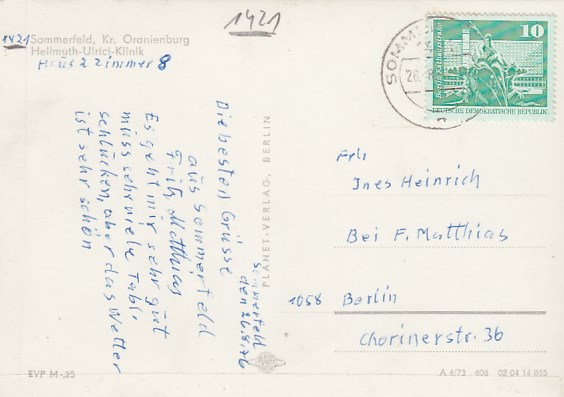 1421
1421 Sommerfeld, Kr. Oranienburg
Hellmuth-Ulrici-Klinik
Haus 2 Zimmer 8
Sommerfeld
den 26.8.76
Die besten Grüsse
aus Sommerfeld
Fritz Matthias
Es geht mir sehr gut
muss sehr viele Tabl.
schlucken, aber das Wetter
ist sehr schön
PLANET-VERLAG, BERLIN
SOMM
26.8
10
Berlin, Rathausstraße
DEUTSCHE DEMOKRATISCHE REPUBLIK
Frl.
Ines Heinrich
Bei F. Matthias
1058 Berlin
Chorinerstr. 36
EVP M -,25
A 4/73 606 02 04 14 065